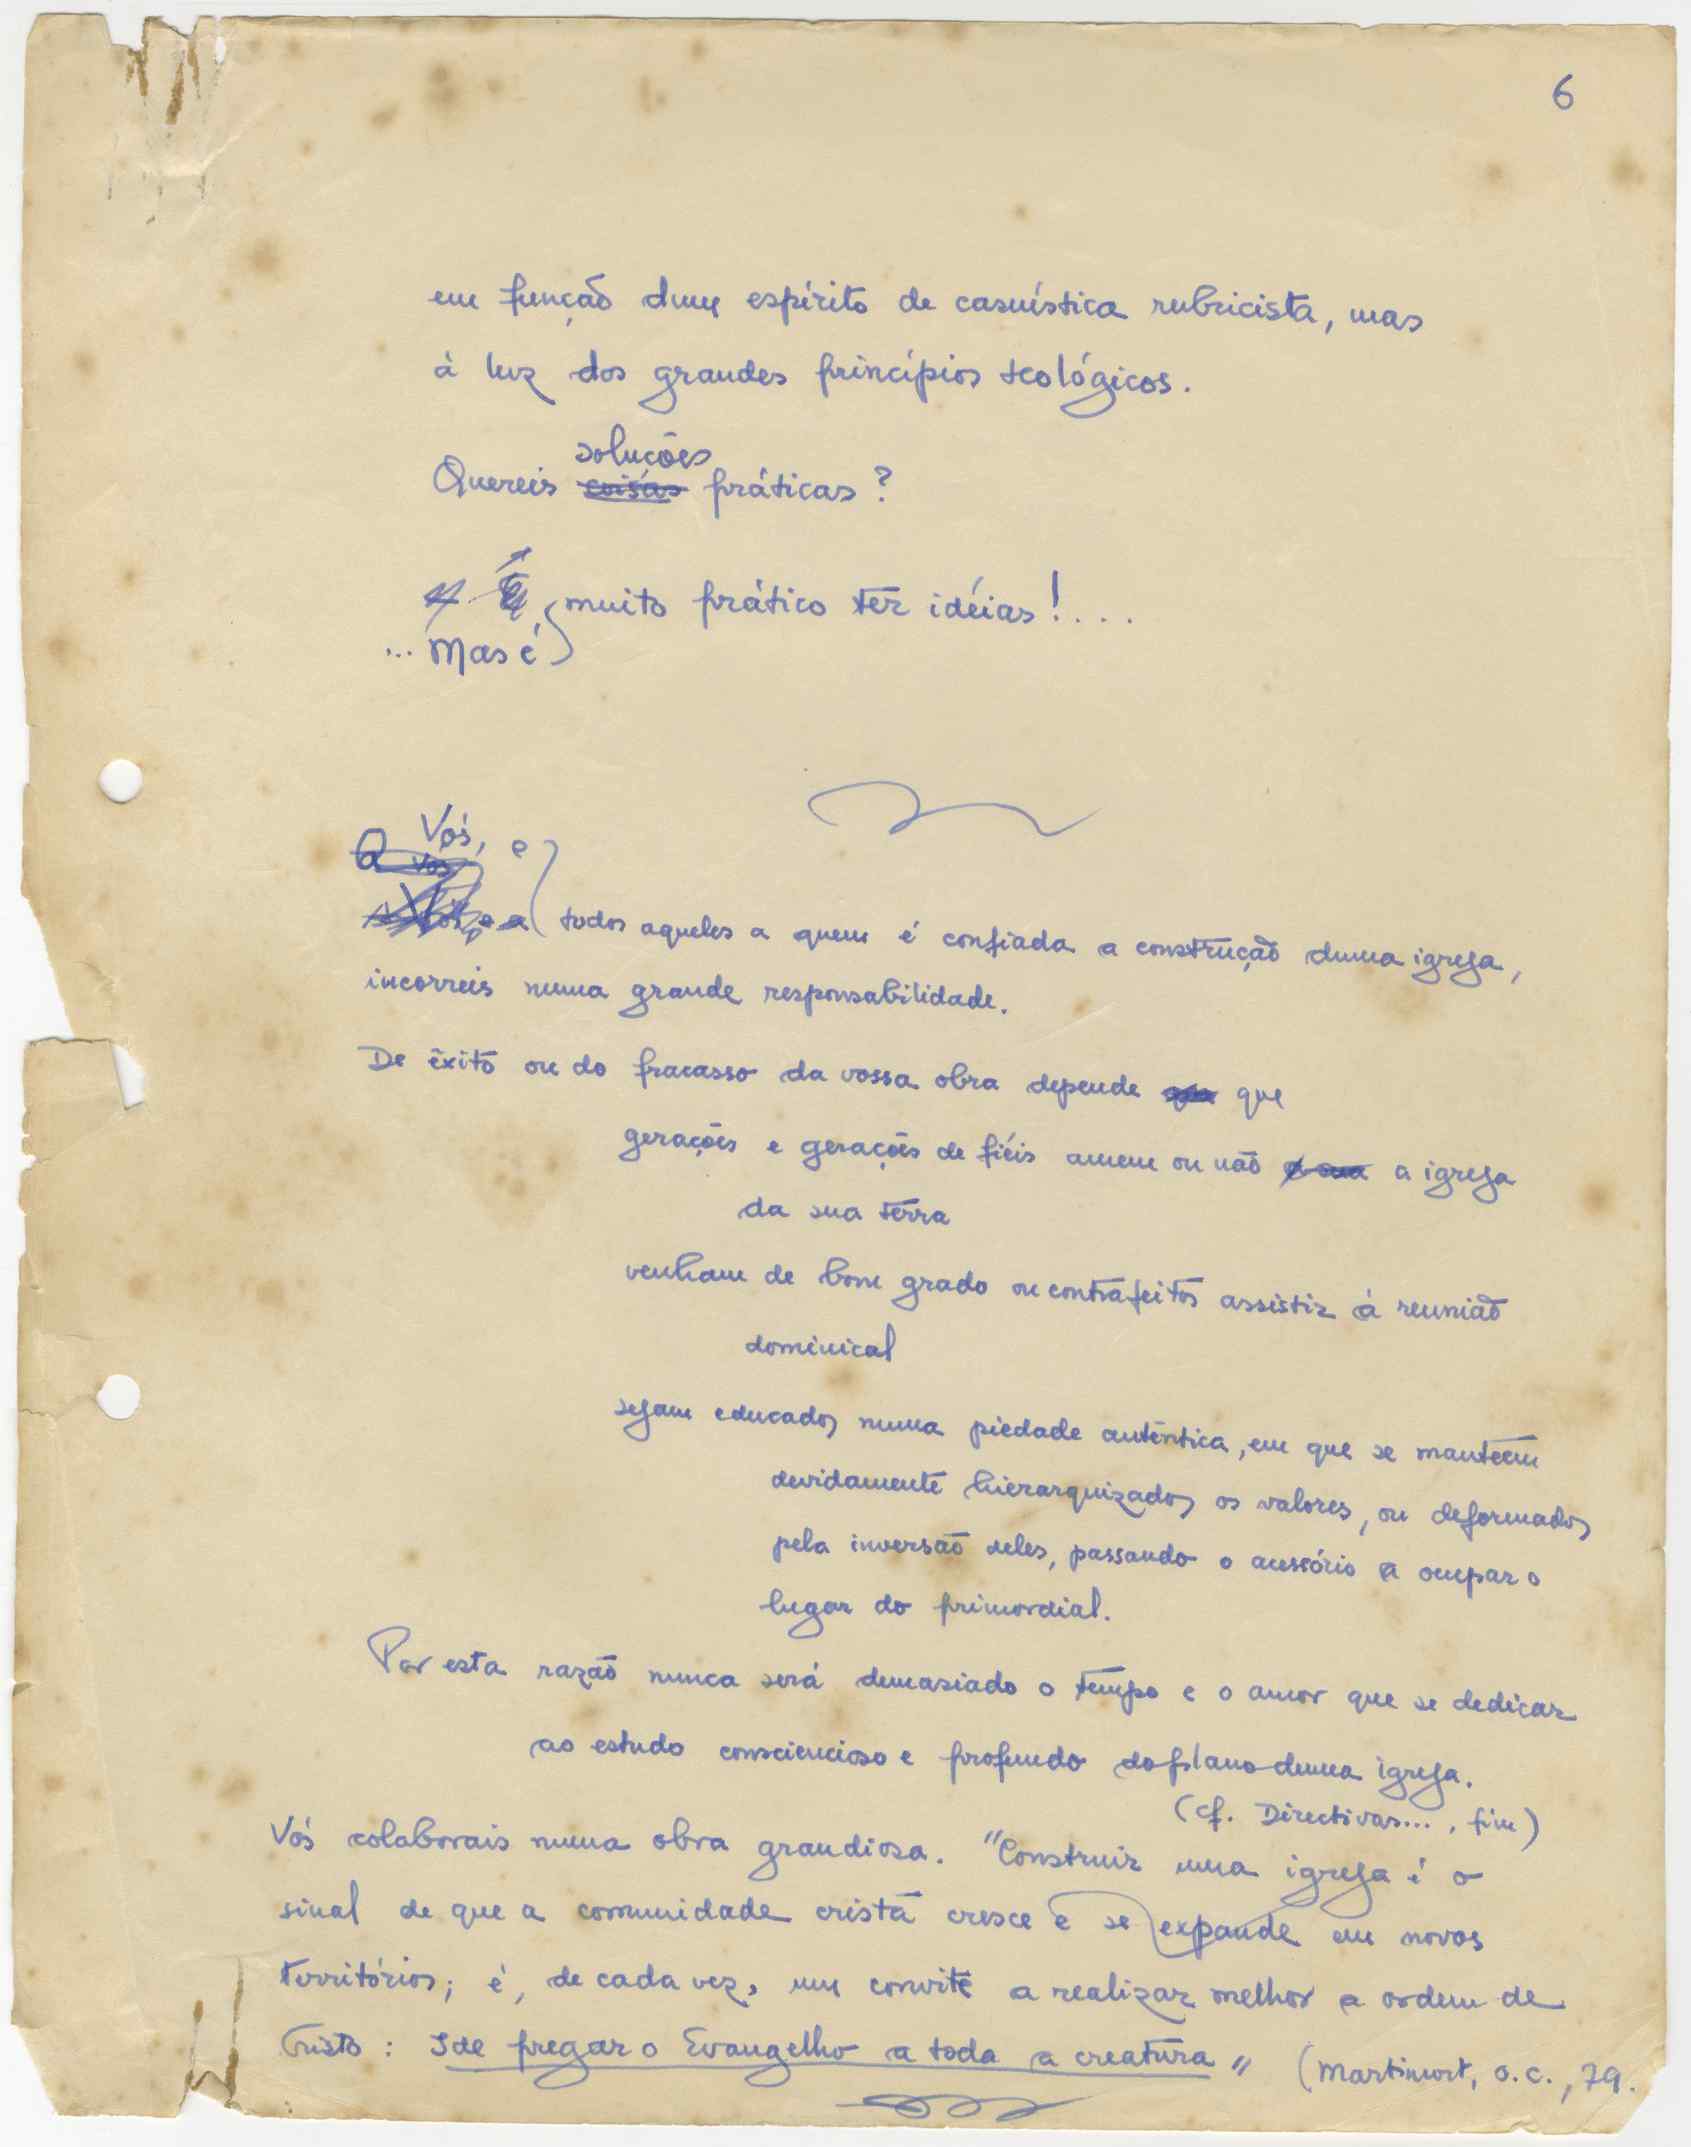 6
em função dum espírito de casuística rubricista, mas
à luz dos grandes princípios teológicos.
soluções
Quereis coisas práticas?
muito prático ter idéias!....
... Mas é
Vós, e
A vós
todos aqueles a quem é confiada a construção duma igreja,
incorreis numa grande responsabilidade.
De êxito ou do fracasso da vossa obra depende que
gerações e gerações de fiéis amem ou não a igreja
da sua terra
venham de bom grado ou contrafeitos assistir à reunião
dominical
sejam educados numa piedade autêntica, em que se mantêem
devidamente hierarquizados os valores, ou deformados
pela inversão deles, passando o acessório a ocupar o
lugar do primordial.
Por esta razão nunca será demasiado o tempo e o amor que se dedicar
ao estudo consciencioso e profundo do plano duma igreja.
(cf. Directivas..., fim)
Vós colaborais numa obra grandiosa. "Construir uma igreja é o
sinal de que a comunidade cristã cresce e se expande em novos
territórios; é, de cada vez, um convite a realizar melhor a ordem de
Cristo: Ide pregar o Evangelho a toda a creatura" (Martimort, o.c., 79.